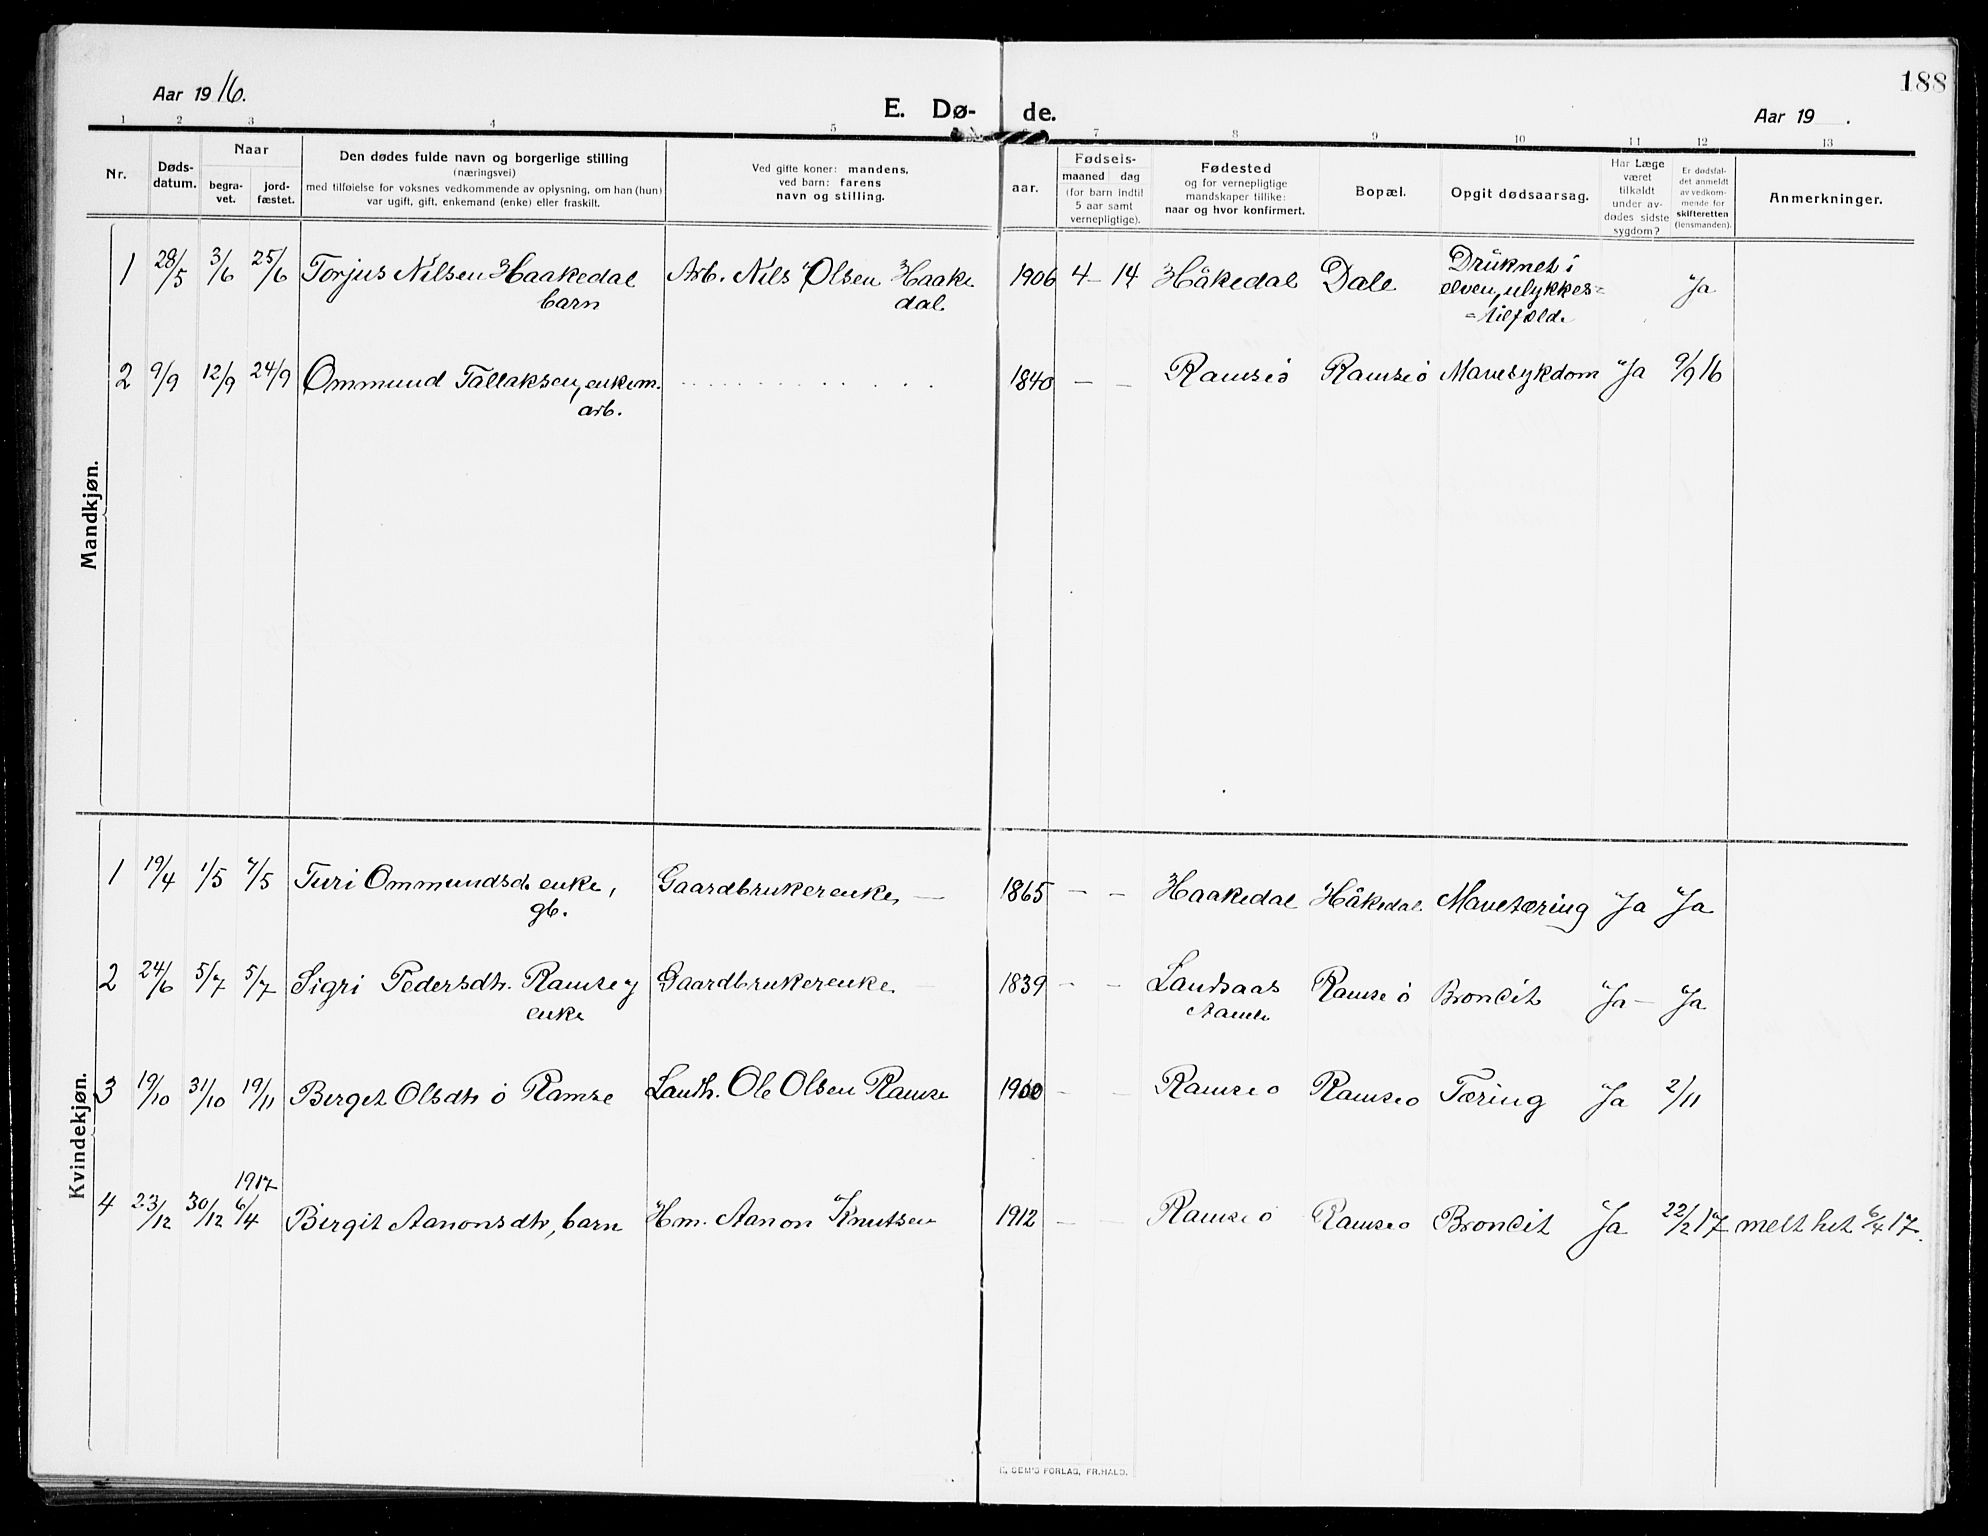 188
Aar 1916.
E. Dø- de.
Aar 19 .
1 2 3 4 5 7 8 9 10 11 12 13
Nr.
Døds-
datum.
Naar
begra-
vet.
jord-
fæstet.
Den dødes fulde navn og borgerlige stilling
(næringsvei)
med tilføielse for voksnes vedkommende av oplysning, om han (hun)
var ugift, gift, enkemand (enke) eller fraskilt.
Ved gifte koner: mandens,
ved barn: farens
navn og stilling.
aar.
Fødsels-
maaned dag
(for barn indtil
5 aar samt
vernepligtige).
Fødested
og for vernepligtige
mandskaper tillike:
naar og hvor konfirmert.
Bopæl.
Opgit dødsaarsag.
Har Læge
været
tilkaldt
under av-
dødes sidste
sygdom?
Er dødsfal-
det anmeldt
av vedkom-
mende for
skifteretten
(lensmanden).
Anmerkninger.
Mandkjøn.
1 28/5 3/6 25/6 Torjus Nilsen Haakedal Arb. Nils Olsen Haake 1906 4 - 14 Håkedal Dale Druknet i Ja
barn dal elven, ulykkes=
=tilfælde
2 9/9 12/9 24/9 Ommund Tallaksen, enkem. . . . . . . . . . . . . . 1840 - - Ramseö Ramseö Mavesykdom Ja 9/9 16
arb.
Kvindekjøn.
1 19/4 1/5 7/5 Turi Ommundsd. enke, Gaardbrukerenke, — 1865 - - Haakedal Håkedal Mavetæring Ja Ja
gb.
2 24/6 5/7 5/7 Sigri Pedersdtr. Ramsey Gaardbrukerenke 1839 - - Landsaas Ramseö Broncit Ja - Ja
enke Aamli
3 19/10 31/10 19/11 Berget Olsdtr ö Ramse Landh. Ole Olsen Ramse 1900 - - Ramseo Ramseo Tæring Ja 2/11
1917
4 23/12 30/12 6/4 Birgit Aanonsdtr, barn Hm. Aanon Knutsen 1912 - - Ramseo Ramseo Broncit Ja 22/2 17 melt hit 6/4 17.
SEM'S FORLAG, FR.HALD.